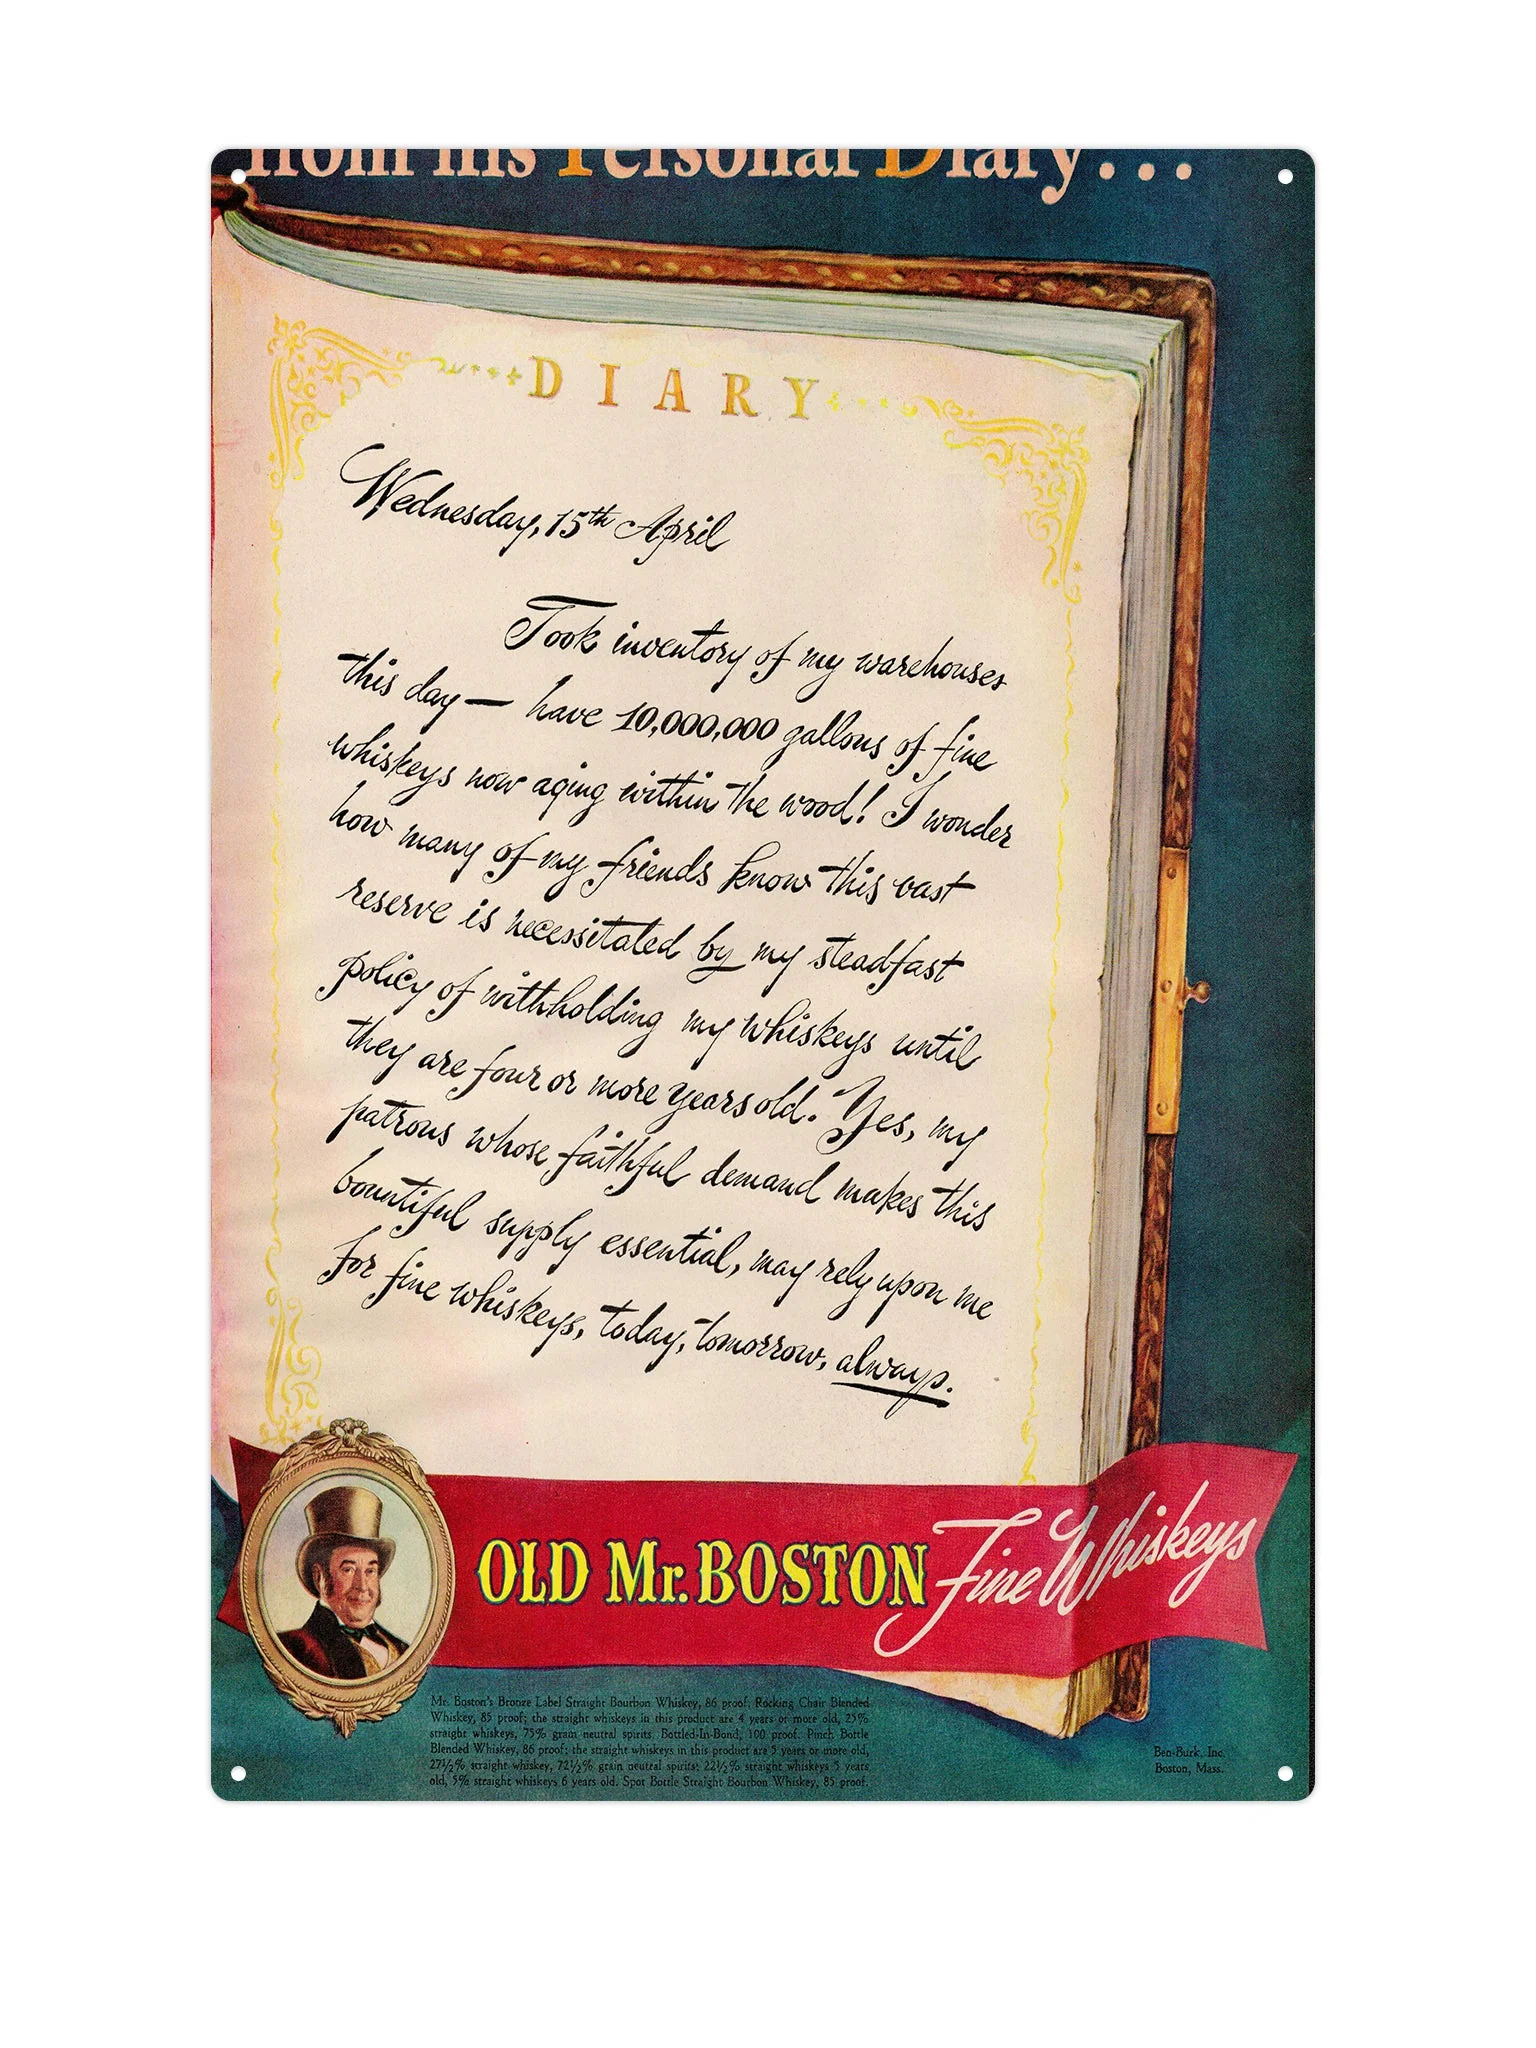 from his Personal Diary...
DIARY
Wednesday, 15th April
Took inventory of my warehouses
this day — have 10,000,000 gallons of fine
whiskeys now aging within the wood! I wonder
how many of my friends know this vast
reserve is necessitated by my steadfast
policy of withholding my whiskeys until
they are four or more years old. Yes, my
patrons whose faithful demand makes this
bountiful supply essential, may rely upon me
for fine whiskeys, today, tomorrow, always.
OLD Mr. BOSTON Fine Whiskeys
Mr. Boston's Bronze Label Straight Bourbon Whiskey, 86 proof; Rocking Chair Blended
Whiskey, 85 proof; the straight whiskeys in this product are 4 years or more old, 25%
straight whiskeys, 75% grain neutral spirits. Bottled-In-Bond, 100 proof. Pinch Bottle
Blended Whiskey, 86 proof; the straight whiskeys in this product are 5 years or more old,
27½% straight whiskey, 72½% grain neutral spirits; 22½% straight whiskeys 5 years
old, 5% straight whiskeys 6 years old. Spot Bottle Straight Bourbon Whiskey, 85 proof.
Ben-Burk, Inc.
Boston, Mass.